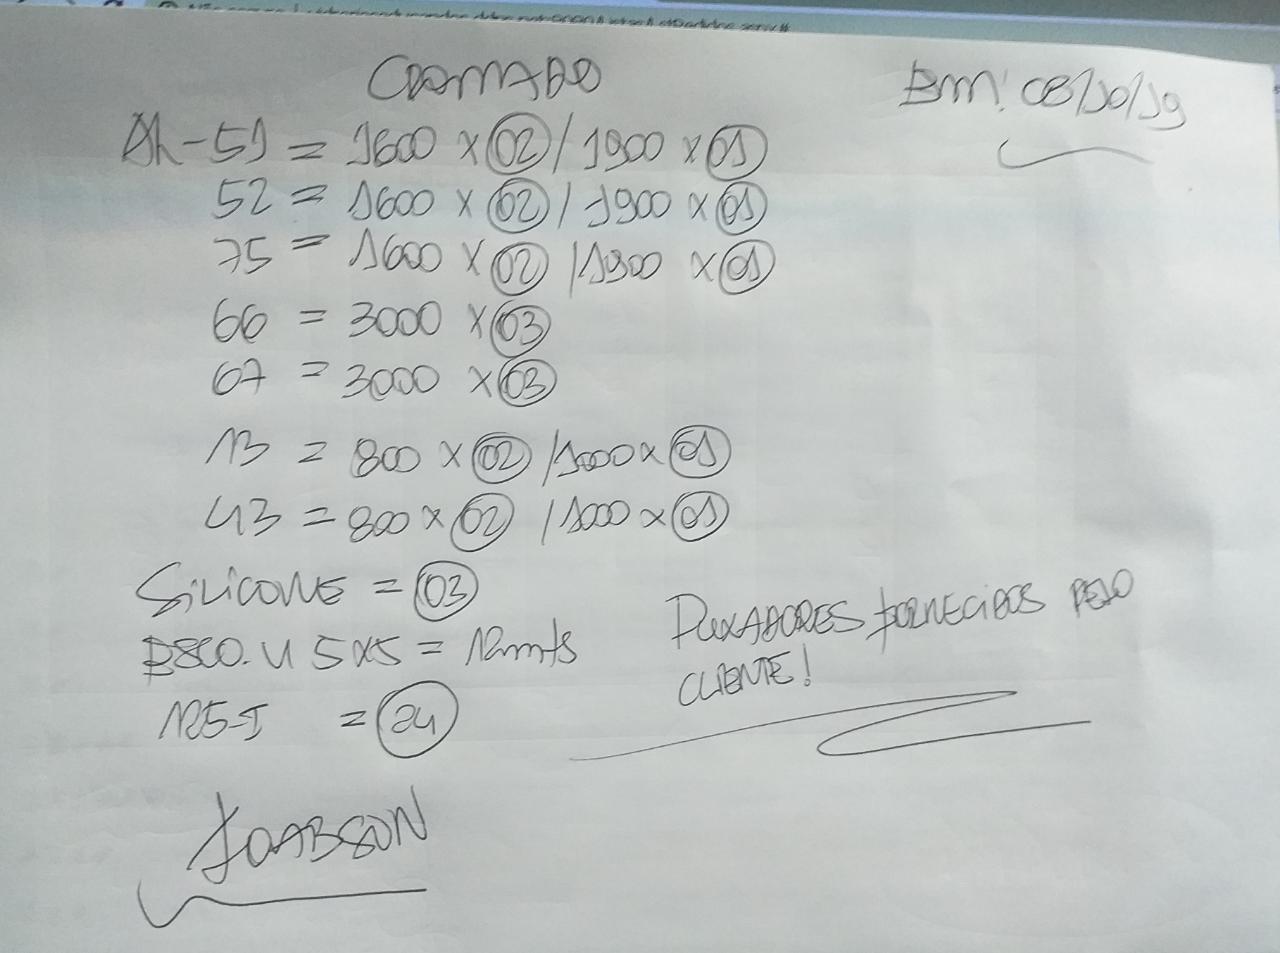 CROMADO
BM! 08/10/19
AL-51 = 1600 x 02 / 1900 x 01
52 = 1600 x 02 / 1900 x 01
75 = 1600 x 02 / 1900 x 01
66 = 3000 x 03
67 = 3000 x 03
13 = 800 x 02 / 1000 x 01
43 = 800 x 02 / 1000 x 01
SILICONE = 03
U 5x5 = 12mts
125-I = 24
PUXADORES FORNECIDOS PELO
CLIENTE!
JOABSON